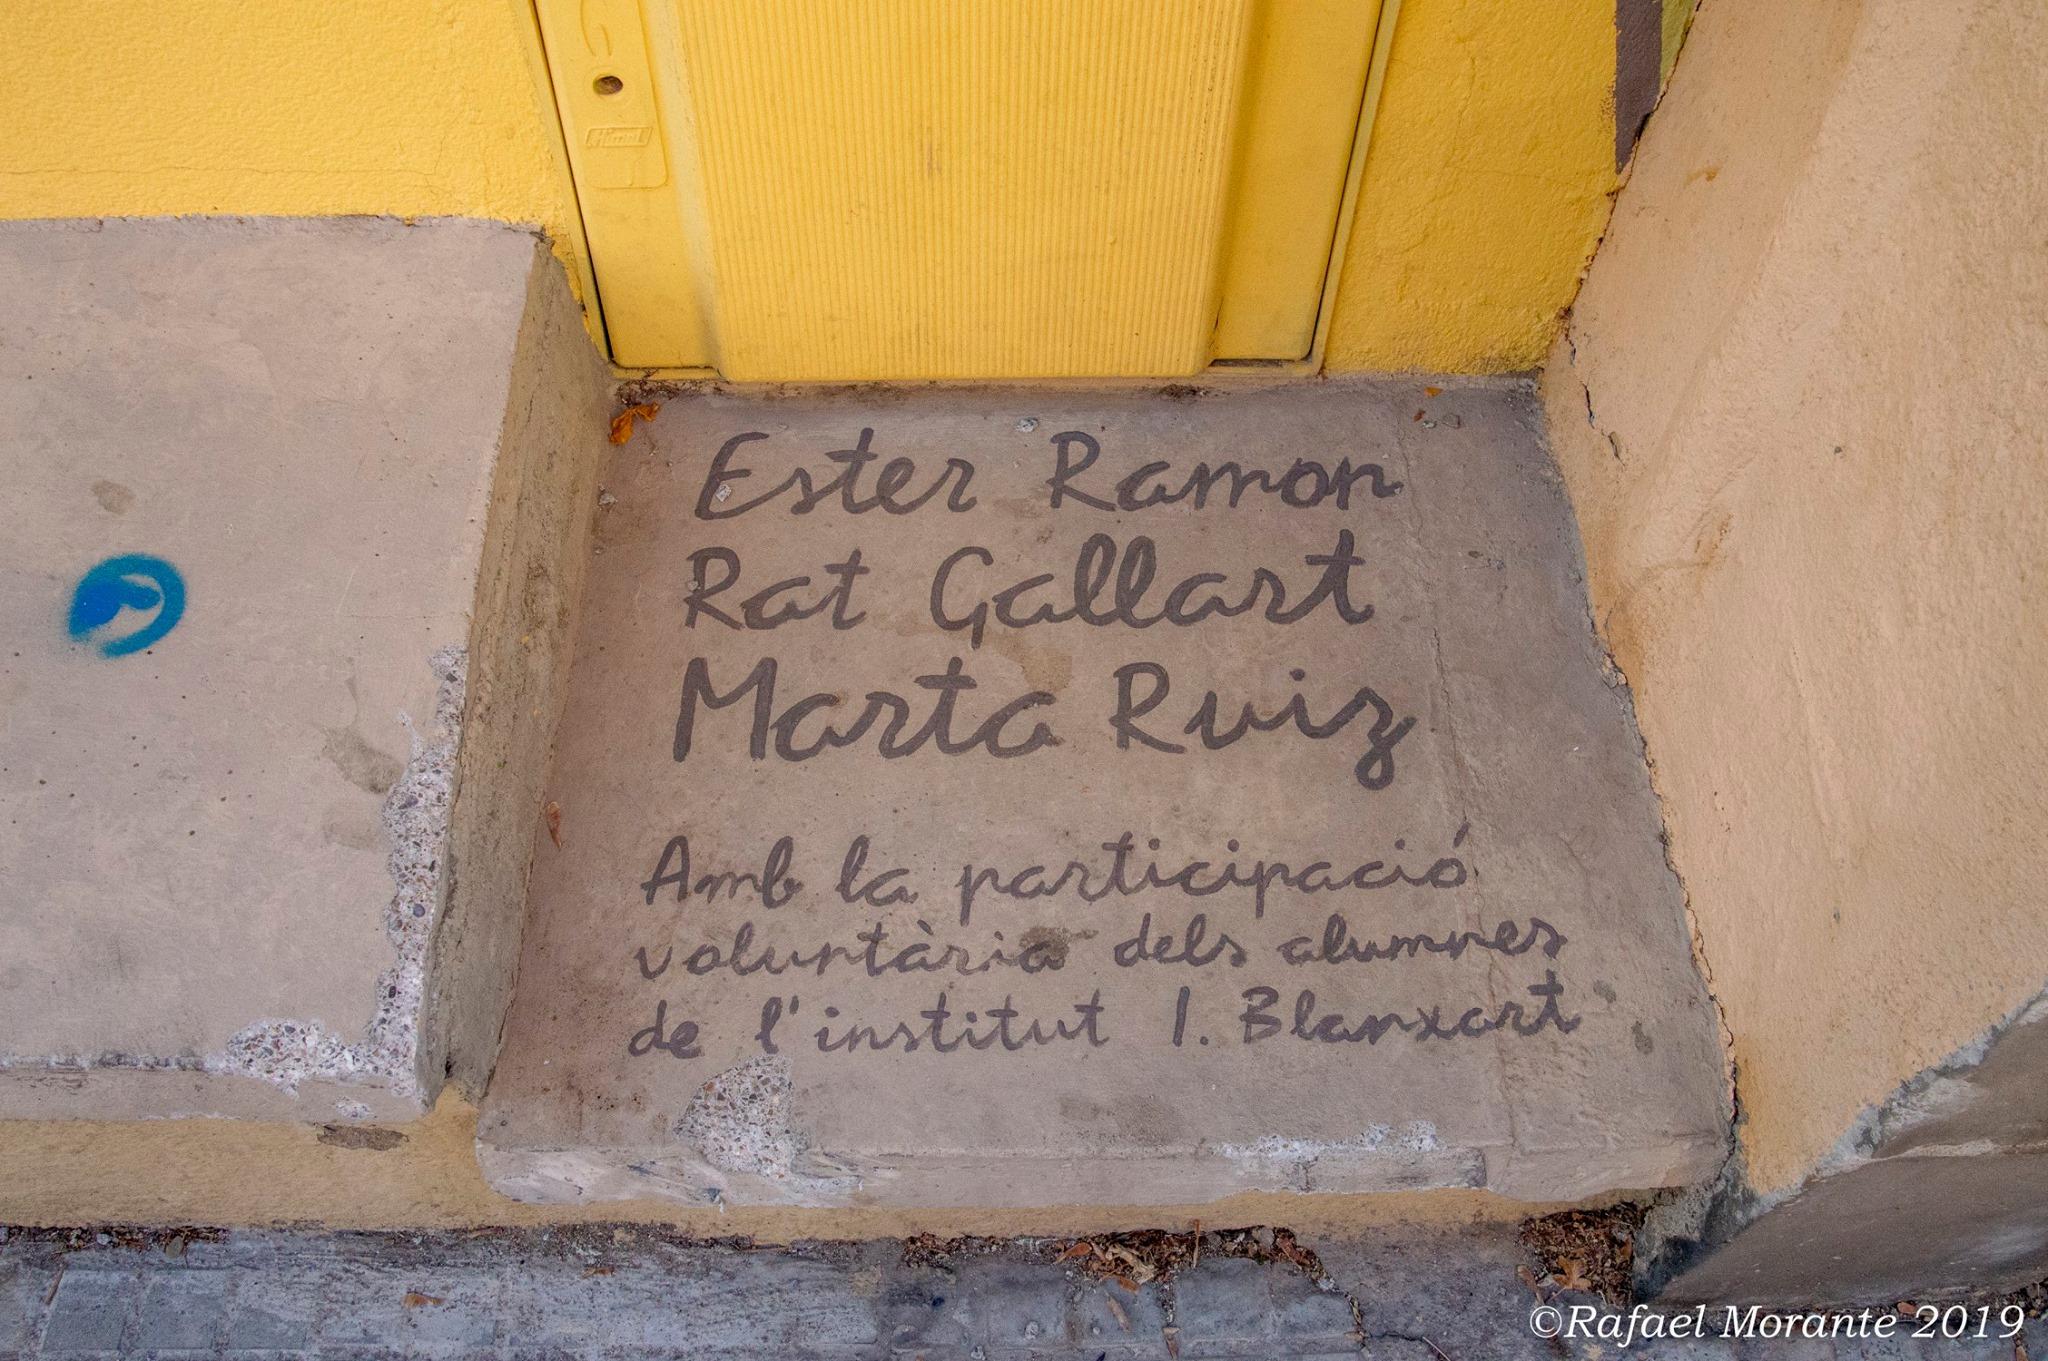 Himel
Ester Ramon
Rat Gallart
Marta Ruiz
Amb la participació
voluntària dels alumnes
de l'institut I. Blanxart
©Rafael Morante 2019